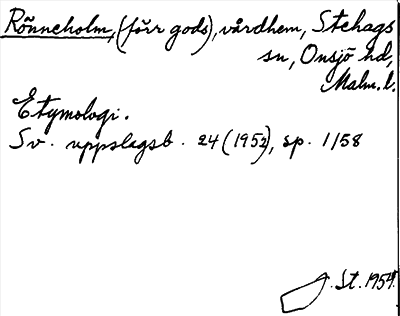 Rönneholm, (förr gods), vårdhem, Stehags
sn, Onsjö hd,
Malm. l.
Etymologi.
Sv. uppslagsb. 24 (1952), sp. 1158
J. St. 1954.